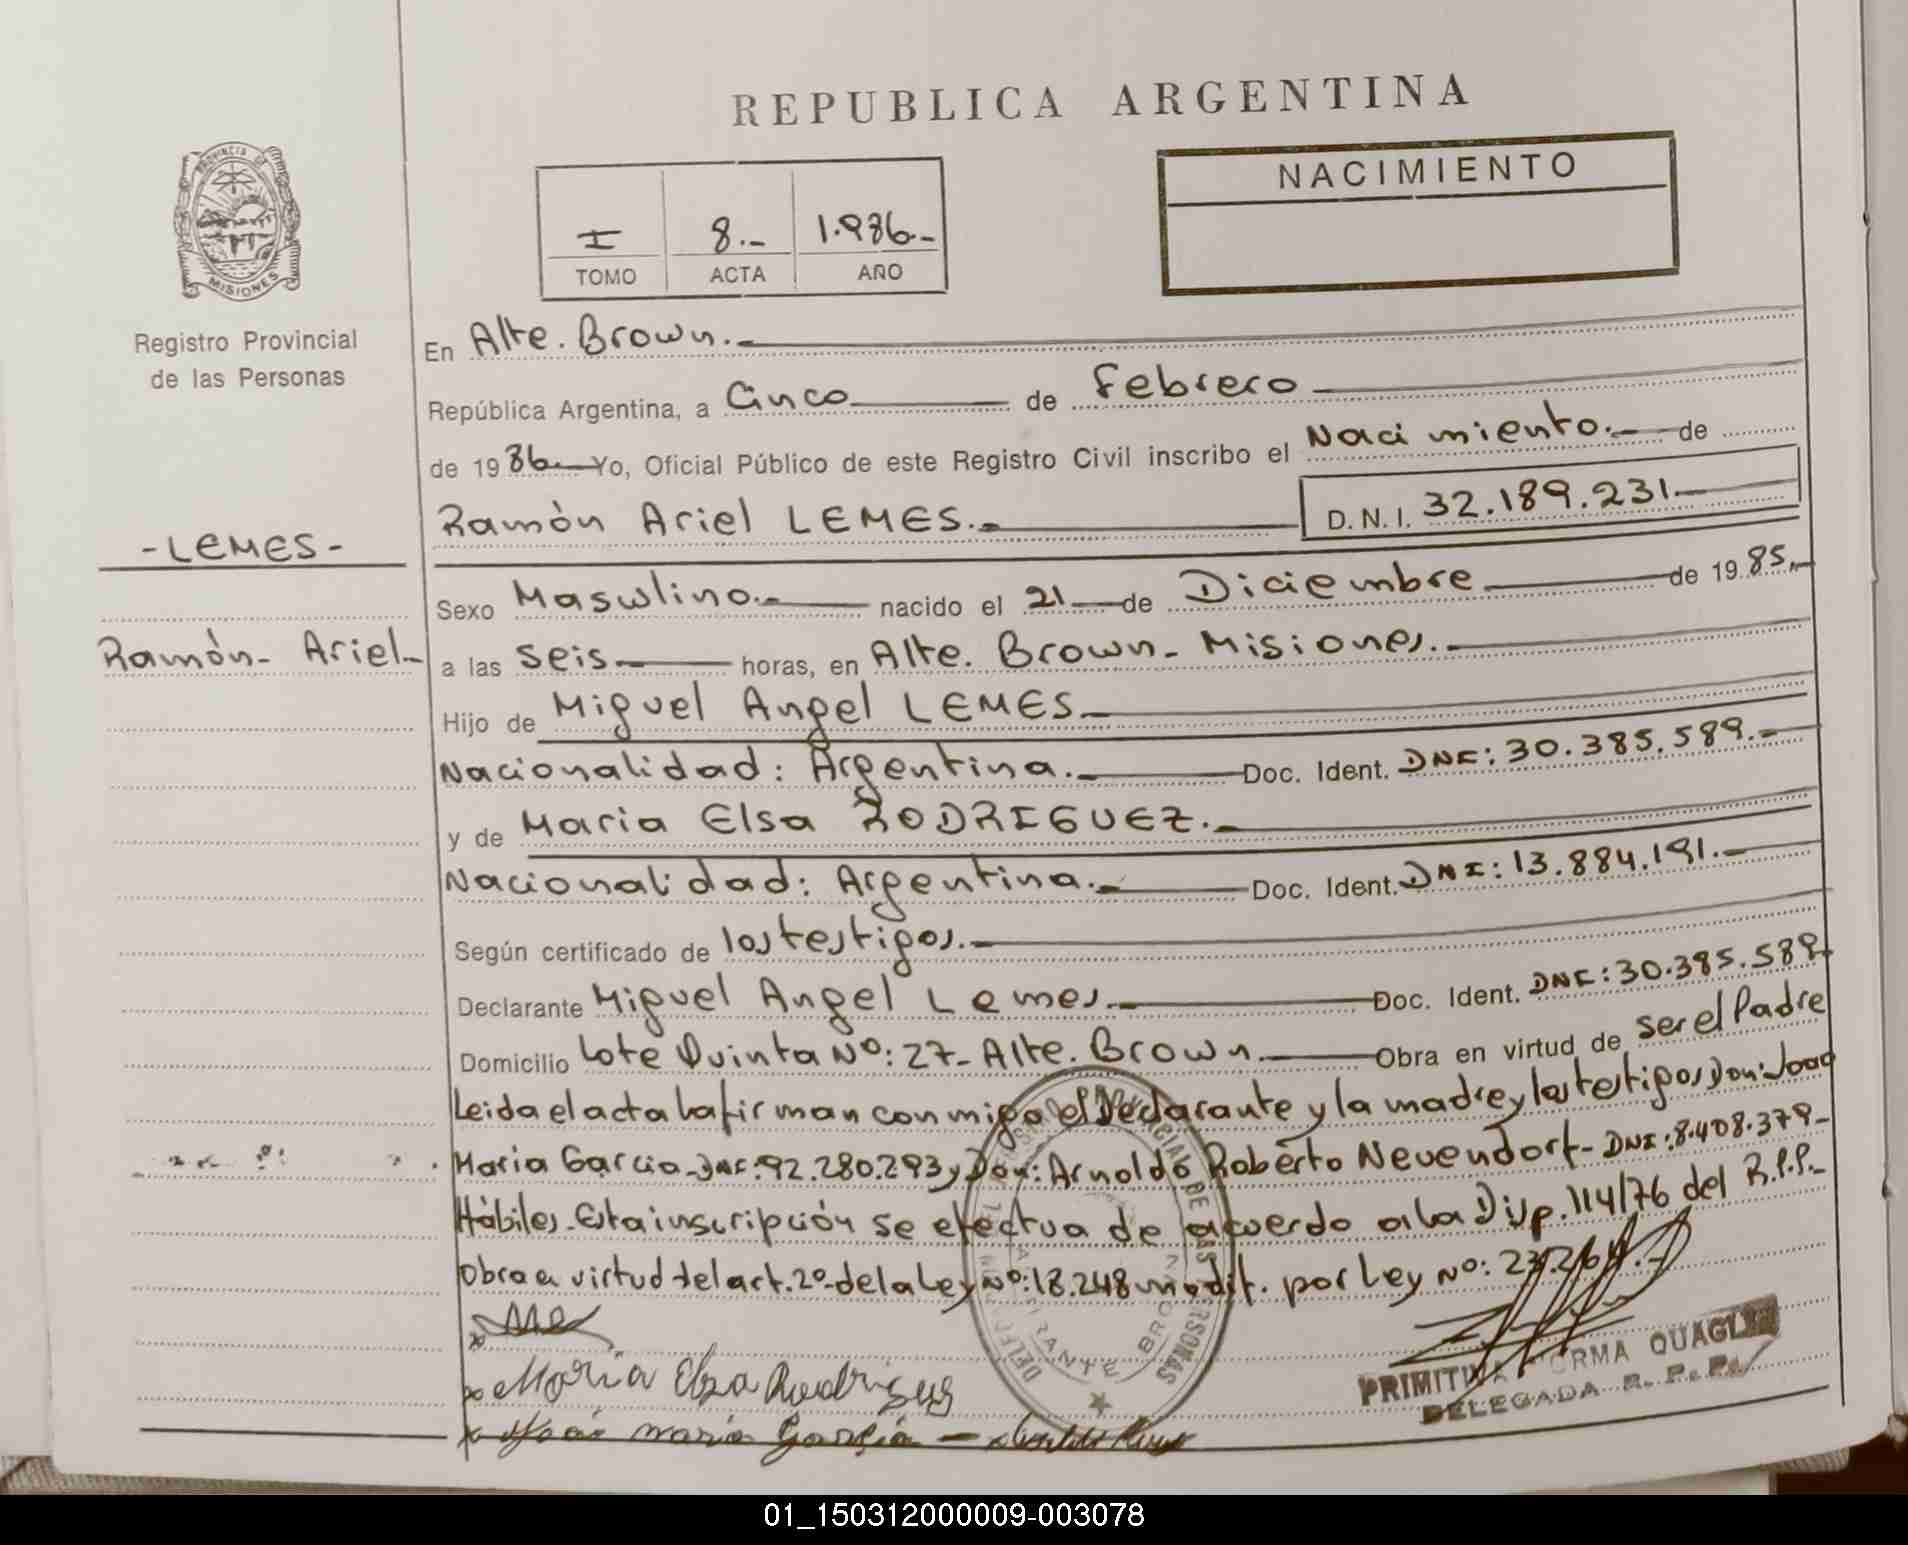 REPUBLICA ARGENTINA
PROVINCIA DE
MISIONES
Registro Provincial
de las Personas
I 8.- 1.986.-
TOMO ACTA AÑO
NACIMIENTO
En Alte. Brown.-
República Argentina, a Cinco de Febrero
de 1986.- Yo, Oficial Público de este Registro Civil inscribo el Nacimiento.- de
Ramón Ariel LEMES.- D.N.I. 32.189.231.-
- LEMES -
Sexo Masculino.- nacido el 21 de Diciembre de 1985.-
Ramón- Ariel-
a las seis horas, en Alte. Brown - Misiones.-
Hijo de Miguel Angel LEMES-
Nacionalidad: Argentina.- Doc. Ident. DNI: 30.385.589.-
y de Maria Elsa RODRIGUEZ.-
Nacionalidad: Argentina.- Doc. Ident. DNI: 13.884.191.-
Según certificado de los testigos.-
Declarante Miguel Angel Lemes.- Doc. Ident. DNI: 30.385.589-
Domicilio Lote Quinta Nº: 27- Alte. Brown.- Obra en virtud de ser el Padre
Leida el acta la firman conmigo el Declarante y la madre y los testigos Don: Joao
Maria Garcia - DNI: 92.280.293 y Don: Arnoldo Roberto Nevendorf - DNI: 8.408.379-
Hábiles. Esta inscripción se efectua de acuerdo a la Disp. 114/76 del R.P.P.-
Obra en virtud del art. 2º de la Ley Nº: 18.248 modif. por Ley Nº: 23.264.-
x Maria Elsa Rodrigues
x Joao maria Garcia -
PROVINCIAL DE LAS PERSONAS
ALMIRANTE BROWN
PRIMITIVA NORMA QUAGLIA
DELEGADA R. P. P.
01_150312000009-003078